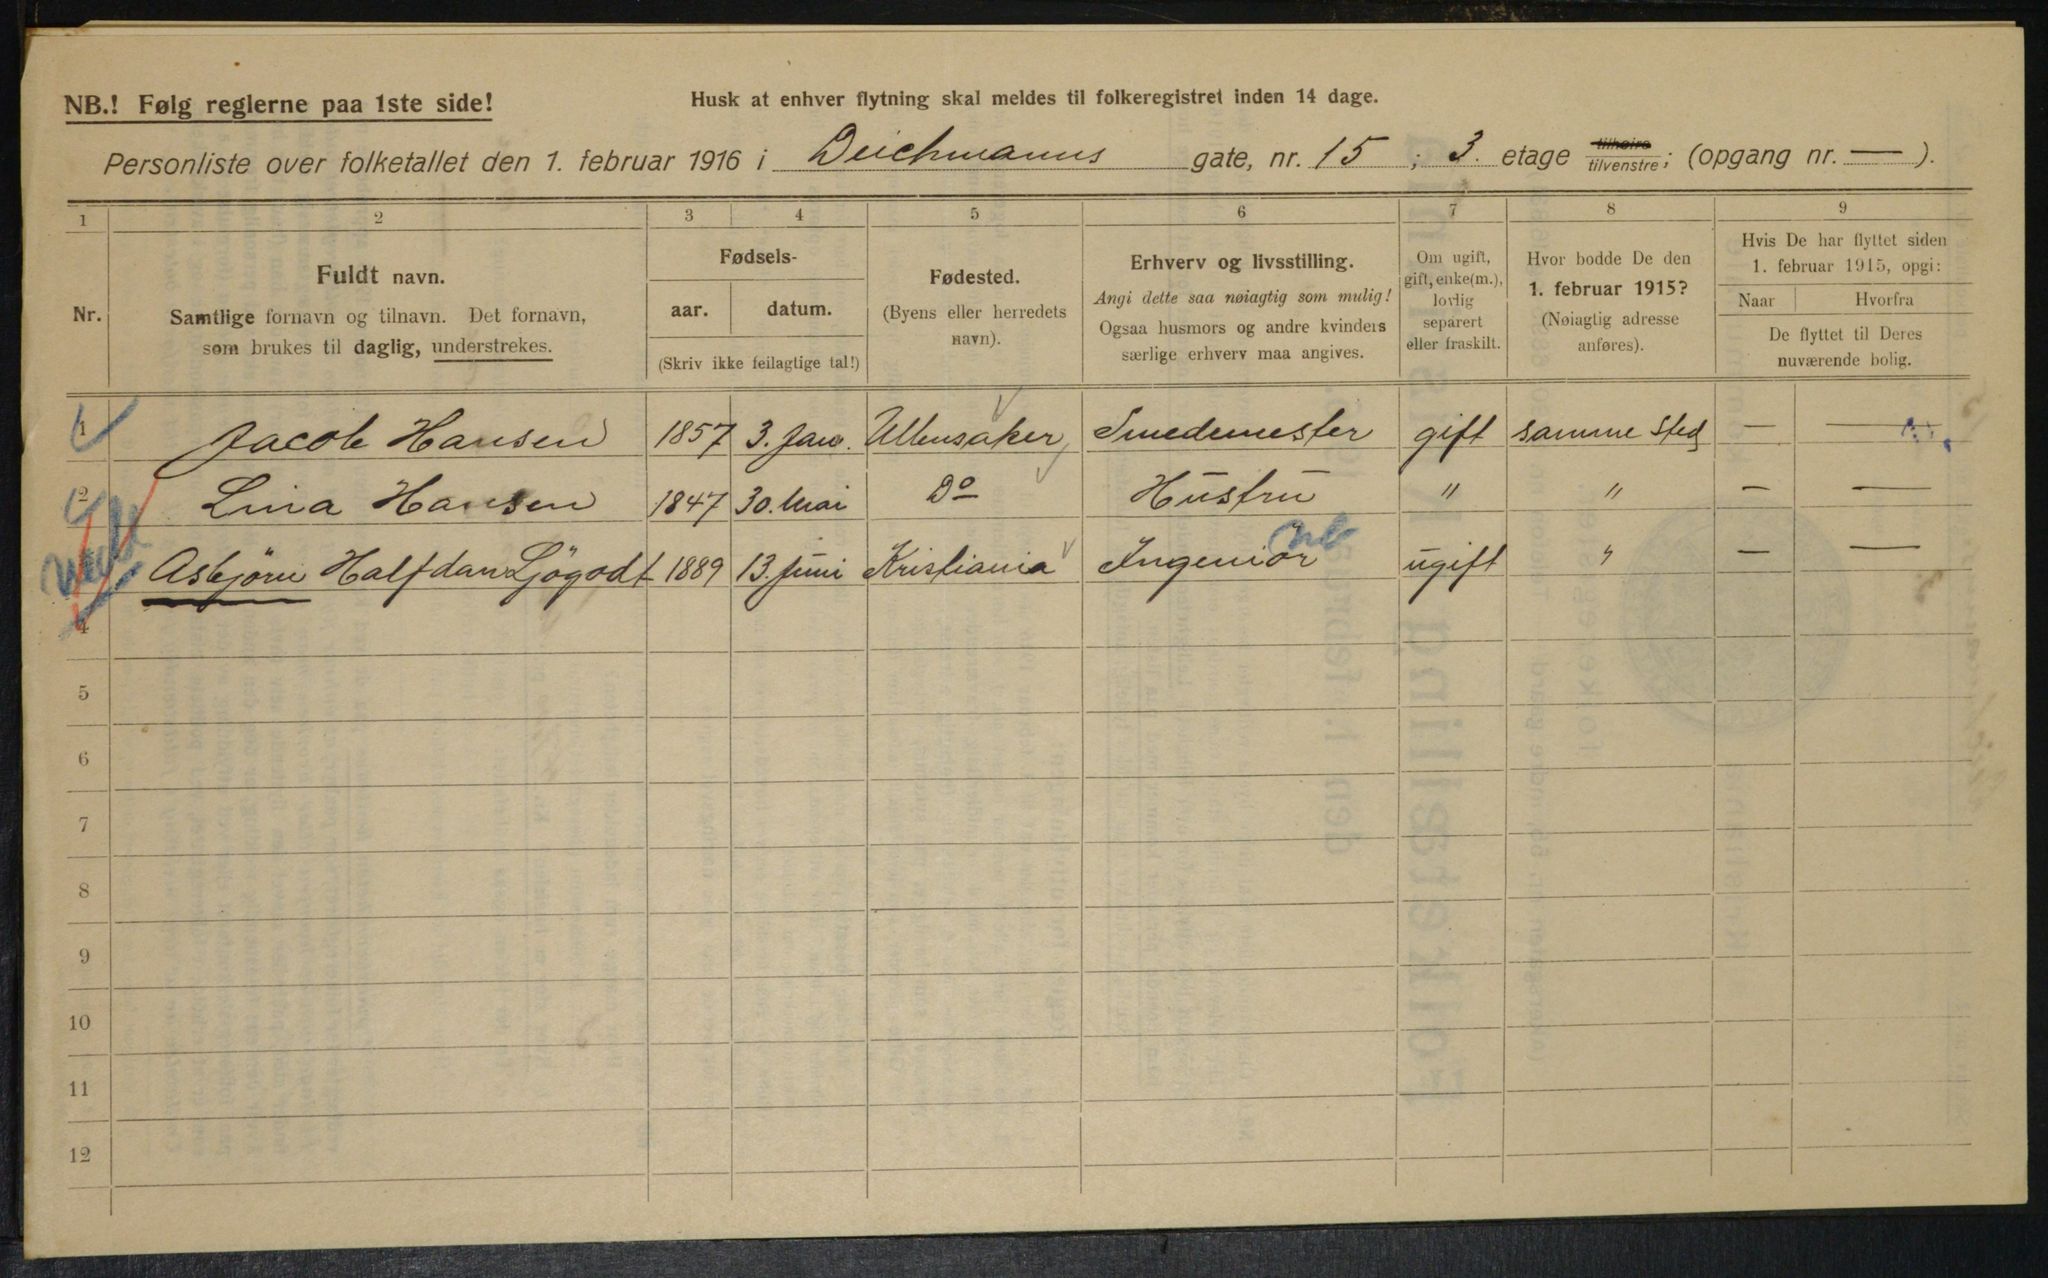 NB.! Følg reglerne paa 1ste side!
Husk at enhver flytning skal meldes til folkeregistret inden 14 dage.
Personliste over folketallet den 1. februar 1916 i Deichmanns gate, nr. 15; 3. etage tilhøire tilvenstre; (opgang nr. — ).
1 2 3 4 5 6 7 8 9
Nr.
Fuldt navn.
Samtlige fornavn og tilnavn. Det fornavn,
som brukes til daglig, understrekes.
Fødsels-
aar. datum.
(Skriv ikke feilagtige tal!)
Fødested.
(Byens eller herredets
navn).
Erhverv og livsstilling.
Angi dette saa nøiagtig som mulig!
Ogsaa husmors og andre kvinders
særlige erhverv maa angives.
Om ugift,
gift, enke(m.),
lovlig
separert
eller fraskilt.
Hvor bodde De den
1. februar 1915?
(Nøiagtig adresse
anføres).
Hvis De har flyttet siden
1. februar 1915, opgi:
Naar Hvorfra
De flyttet til Deres
nuværende bolig.
1 Jacob Hansen 1857 3. Jan. Ullensaker Smedemester gift samme sted — —
2 Lina Hansen 1847 30. Mai Do Hustru " " — —
Asbjörn Halfdan Ljögodt 1889 13. Juni Kristiania Ingeniör ugift " — —
4
5
6
7
8
9
10
11
12